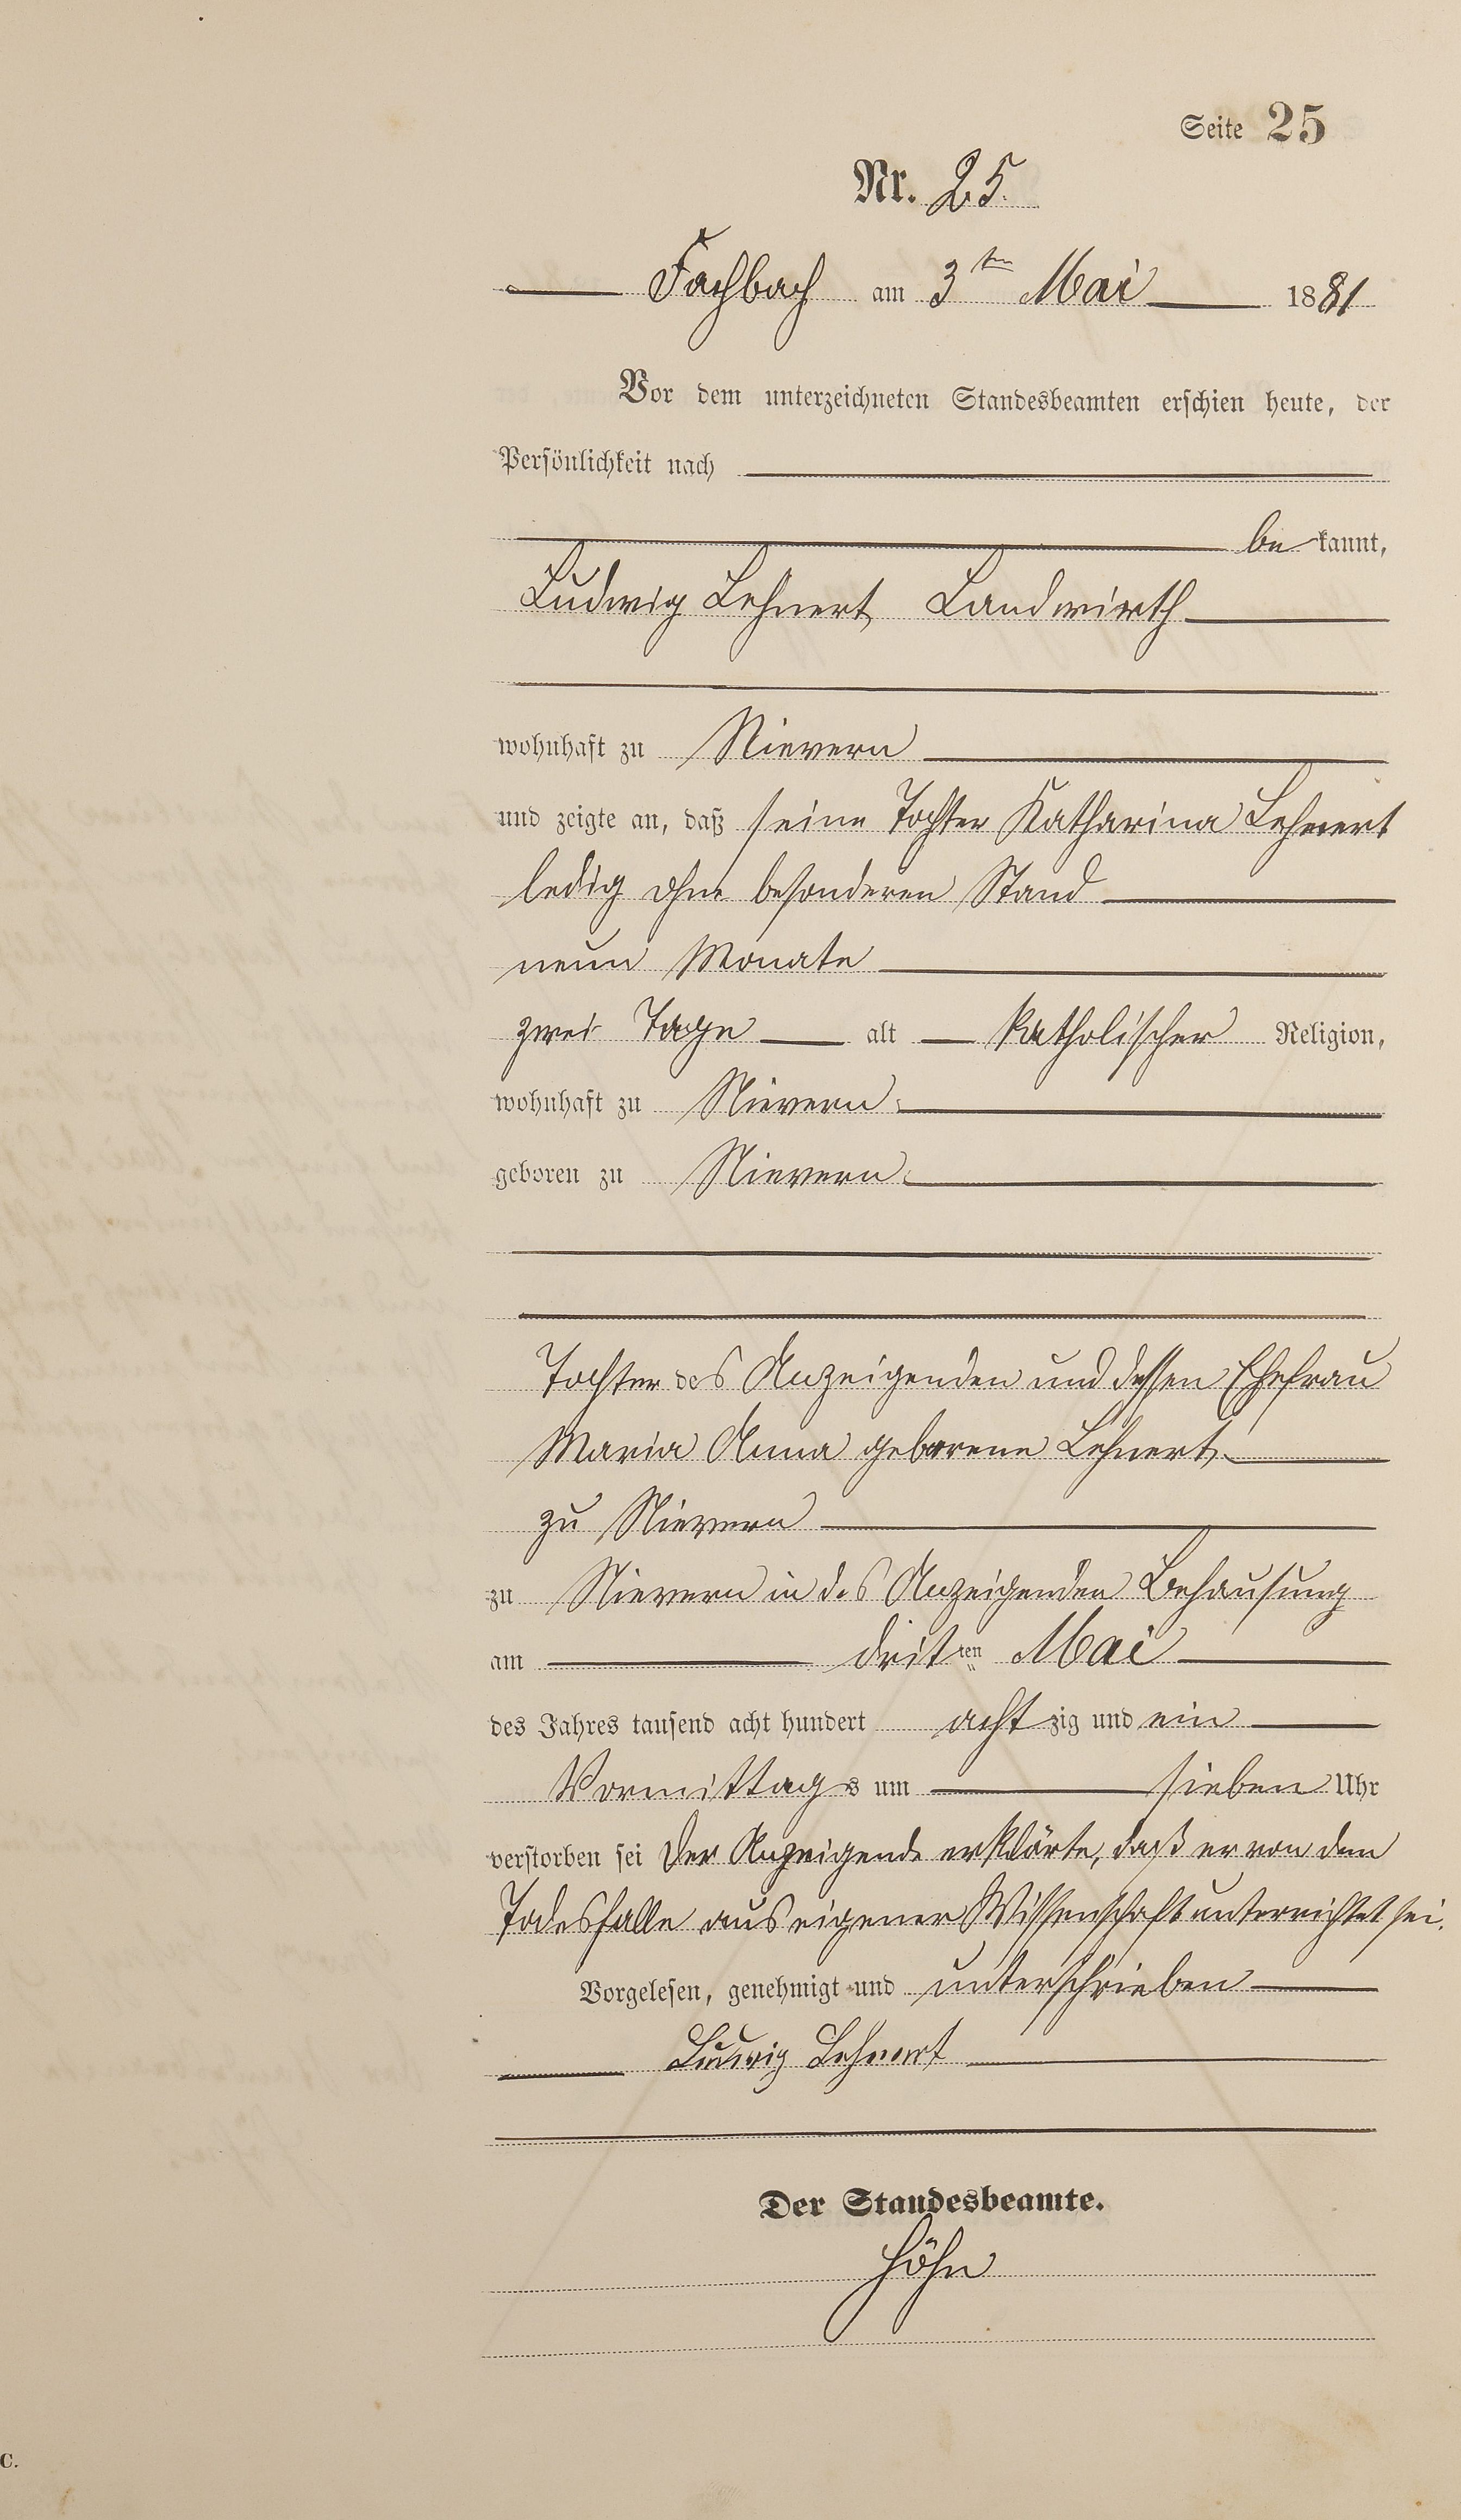 Seite 25
Nr. 25.
Fachbach am 3ten Mai 1881
Vor dem unterzeichneten Standesbeamten erschien heute, der
Persönlichkeit nach
be kannt,
Ludwig Lehnert, Landwirth
wohnhaft zu Nievern
und zeigte an, daß seine Tochter Katharina Lehnert
ledig ohne besonderen Stand
neun Monate
zwei Tage alt katholischer Religion,
wohnhaft zu Nievern
geboren zu Nievern
Tochter des Anzeigenden und dessen Ehefrau
Maria Anna geborene Lehnert
zu Nievern
zu Nievern in des Anzeigenden Behausung
am dritten Mai
des Jahres tausend acht hundert acht zig und ein
Vormittags um sieben Uhr
verstorben sei Der Anzeigende erklärte, daß er von dem
Todesfalle aus eigener Wissenschaft unterrichtet sei.
Vorgelesen, genehmigt und unterschrieben
Ludwig Lehnert
Der Standesbeamte.
Höhn
C.